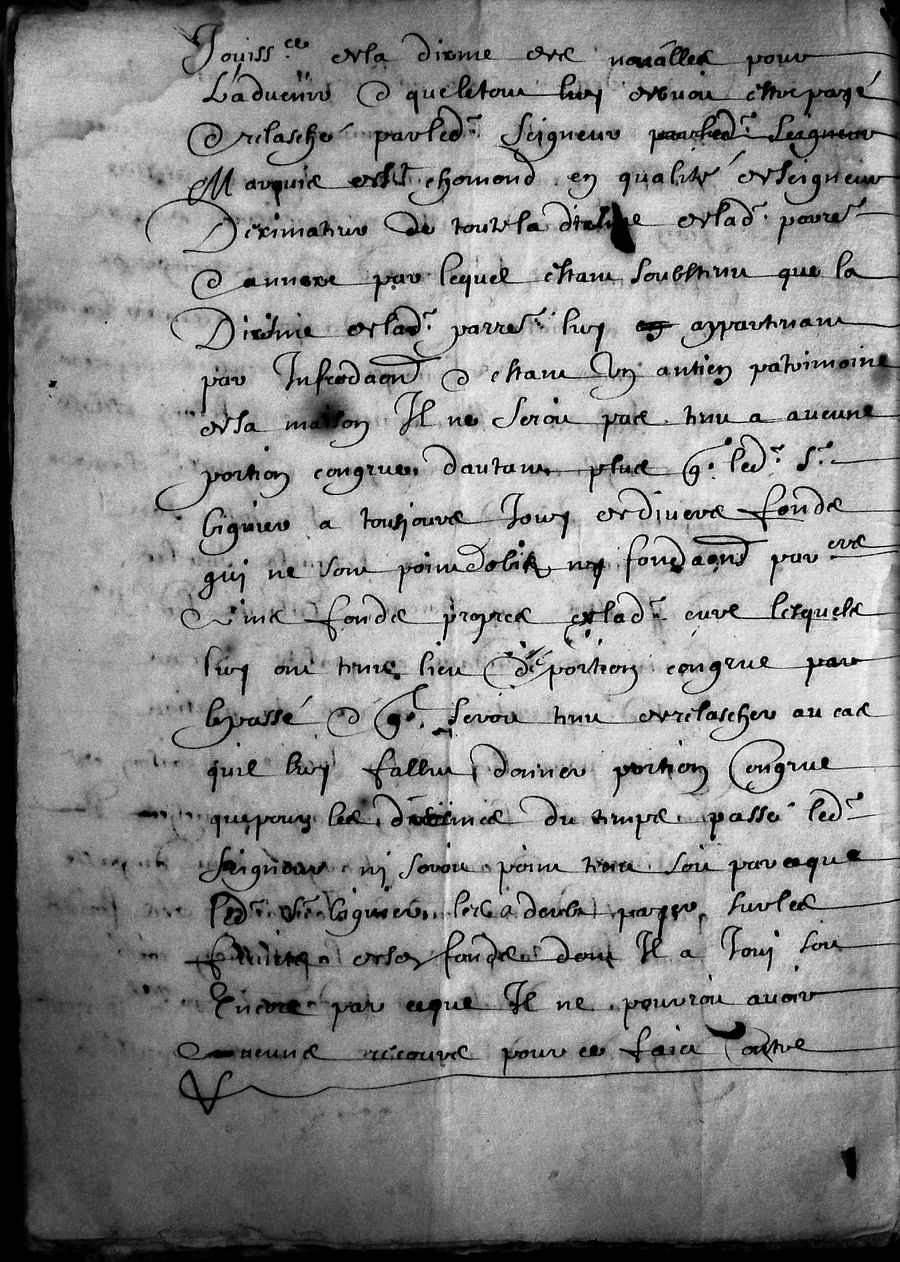 Jouiss.ce de la dixme des novalles pour
L'advenir & que le tout luy devoit estre payé
& relasché par led.t Seigneur par led.t Seigneur
Marquis de St chomond en qualité de seigneur
Deximateur de toute la dixme de lad.t parre.
& annexe par lequel estant soubstenu que la
Dixsme de lad.t parre. luy appartenant
par Infeodaon & estant un antien patrimoine
de sa maison Il ne seroit pas tenu a aucune
portion congrue dautant plus q. led.t S.r
biguier a tousjours Jouy de divers fonds
qui ne sont point dobit ny fondaons par des
ains fonds propres de lad.t cure lesquels
luy ont tenu lieu de portion congrue par
le passé & q. seroit tenu de relascher au cas
quil luy fallut donner portion Congrue
que pour les decimes du temps passé led.t
Seigneur ni seroit point tenu soit par ce que
led.t S.r biguier les a deub payer sur les
fruits de ses fonds dont Il a Joui soit
Encore par ce que Il ne pourroit avoir
aucune recours pour ce faict Contre